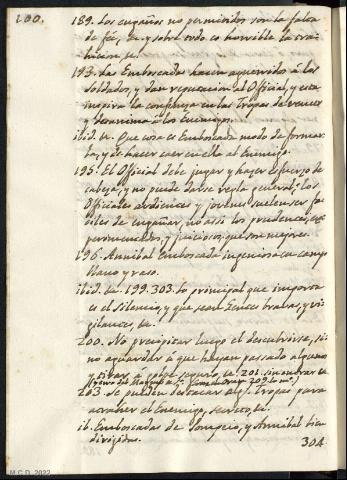 200.
189. Los engaños no permitidos son la falta
de fé, &. y sobre todo es horrible la
193. Las Emboscadas hacen aguerrido á los
soldados, y dan reputacion al Oficial, y esta
inspira la confianza en las Tropas de vencer
y à los Enemigos.
ibid. &. Que cosa es Emboscada modo de formar-
la, y de hacer caer en ella al Enemigo.
195. El Oficial debe jugar y hacer esfuerzo de
cabeza, y no puede darse regla general; los
Oficiales ardientes y jovenes suelen ser fa-
ciles de engañar, no assi los prudentes, ex-
perimentados, y juiciosos que son mejores.
196. Annibal Emboscada ingeniosa en campo
llano y raso.
ibid. &. 199. 303. Lo principal que importa
es el silencio, y que sean Gentes bravas, y vi-
gilantes, &.
200. No precipitar luego el descubrirse, si-
no aguardar à que hayan passado algunos
y tirar à golpe seguro, &. 201. sin entrar en
203. Se pueden destacar alg.s Tropas para
atraher el Enemigo, secreto, &.
ib. Emboscadas de Pompeio, y Annibal bien
dirigidas.
304
M.C.D. 2022